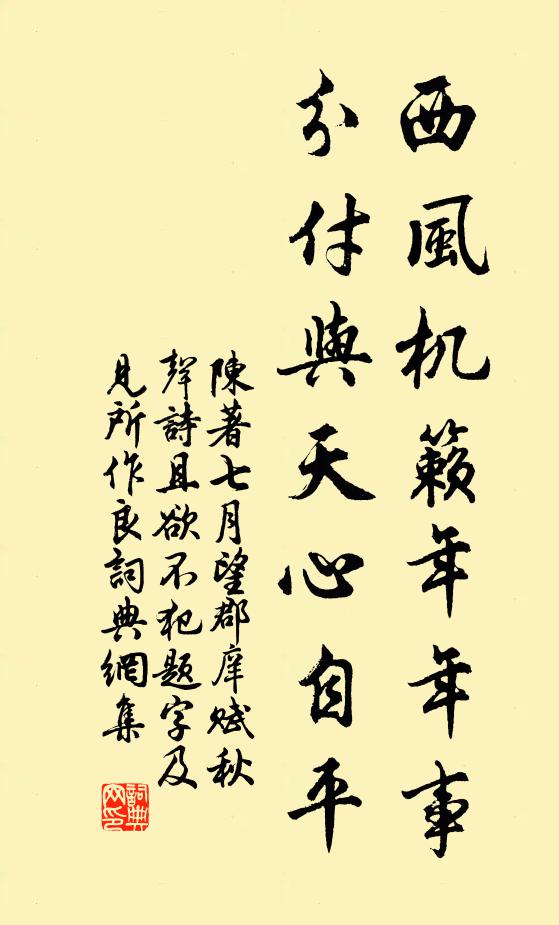 西風机籟年年事
分付與天心自平
陳著七月望郡庠賦秋
聲詩且欲不犯題字及
見所作良詞典網集
詞典網印